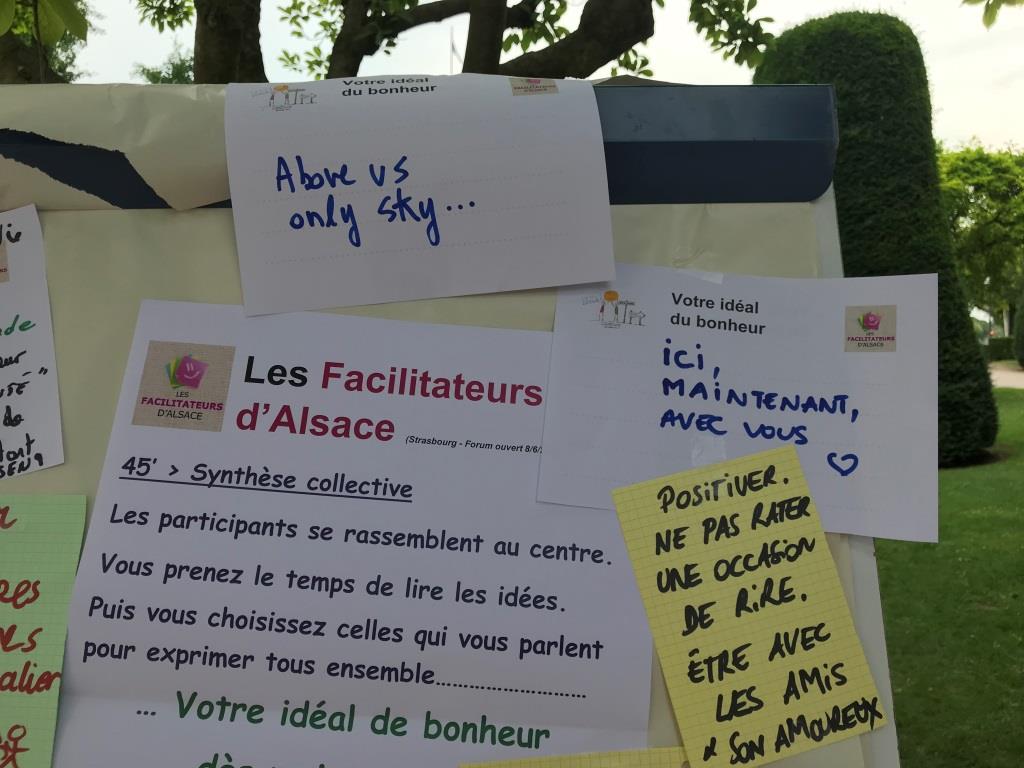 Votre idéal
du bonheur
Above us
only sky...
Votre idéal
du bonheur
LES
FACILITATEURS
D'ALSACE
ici,
MAINTENANT,
AVEC VOUS
LES
FACILITATEURS
D'ALSACE
Les Facilitateurs
d'Alsace
(Strasbourg - Forum ouvert 8/6/
45' > Synthèse collective
Les participants se rassemblent au centre.
Vous prenez le temps de lire les idées.
Puis vous choisissez celles qui vous parlent
pour exprimer tous ensemble..............................
... Votre idéal de bonheur
POSITIVER.
NE PAS RATER
UNE OCCASION
DE RIRE.
ÊTRE AVEC
LES AMIS
& SON AMOUREUX